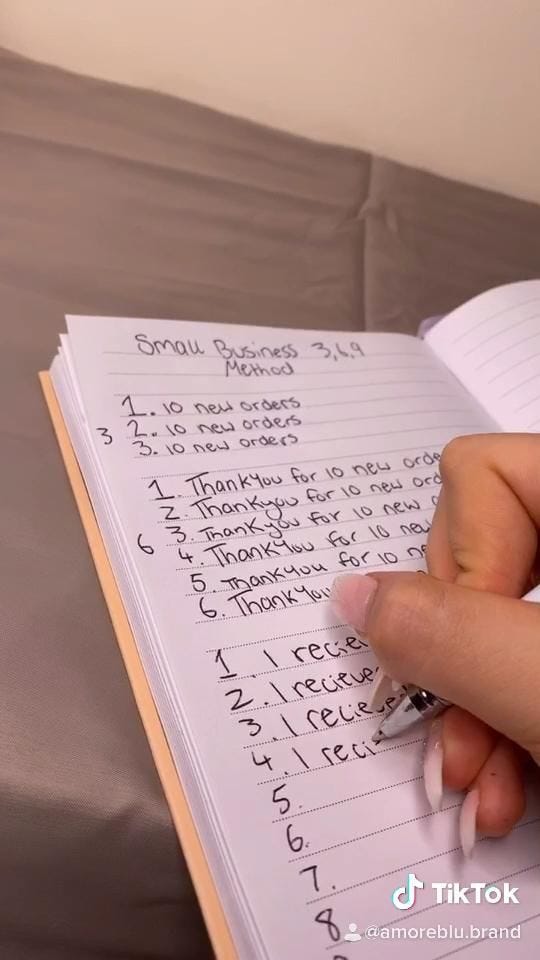 Small Business 3,6,9
Method
1. 10 new orders
3 2. 10 new orders
3. 10 new orders
1. Thankyou for 10 new orde
2. Thankyou for 10 new ord
3. Thankyou for 10 new
6 4. Thankyou for 10 new
5. Thankyou for 10 ne
6. Thankyou
1. I recie
2. I recieve
3. I recieve
4. I reci
5.
6.
7.
8
TikTok
@amoreblu.brand